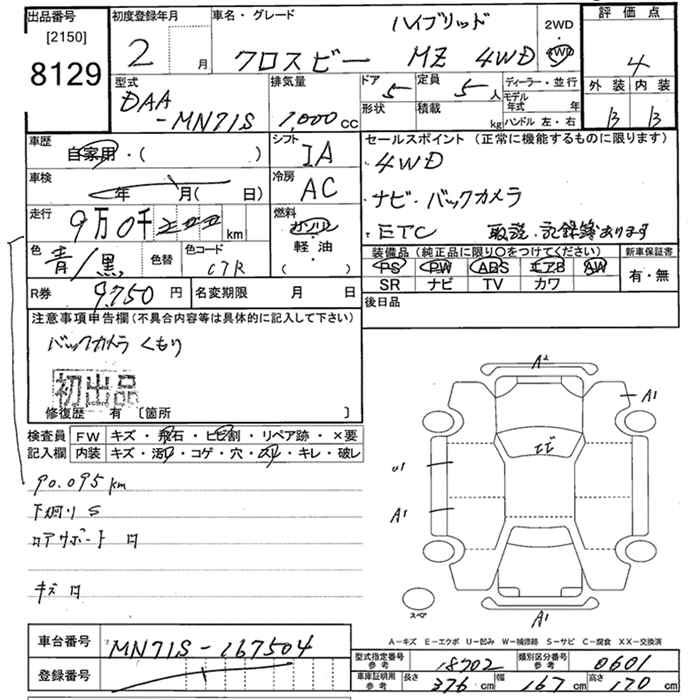 出品番号
[2150]
8129
初度登録年月
2 月
車名・グレード
ハイブリッド
クロスビー MZ 4WD
2WD
・
4WD
評価点
4
外装 内装
B B
型式
DAA
-MN71S
排気量
1,000 cc
ドア 5
定員 5 人
形状
積載 kg
ディーラー・並行
モデル年式 年
ハンドル 左・右
車歴
自家用・( )
シフト
IA
車検
年 月( 日)
冷房
AC
走行
9万0千 km
燃料
ガソリン
軽・油
( )
色
青/黒
色替
色コード
C7R
R券 9,750 円
名変期限 月 日
セールスポイント (正常に機能するものに限ります)
4WD
ナビ・バックカメラ
ETC 取説・記録簿あります
装備品(純正品に限り○をつけてください)
PS PW ABS エアB AW
SR ナビ TV カワ
新車保証書
有・無
後日品
注意事項申告欄(不具合内容等は具体的に記入して下さい)
バックカメラ くもり
初出品
修復歴 有 〔箇所 〕
検査員
記入欄
FW キズ・飛石・ヒビ割・リペア跡・×要
内装 キズ・汚れ・コゲ・穴・スリ・キレ・破レ
90.095km
下廻り S
コアサポート
キズ
A2
A1
エビ
U1
A1
A1
スペア
A−キズ E−エクボ U−凹み W−補修跡 S−サビ C−腐食 XX−交換済
車台番号 MN71S-167504
登録番号
型式指定番号 参考 18702
類別区分番号 参考 0601
車庫証明用 参考 長さ 376 cm 幅 167 cm 高さ 170 cm